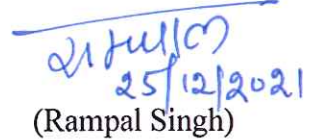 रामपाल
25/12/2021
(Rampal Singh)